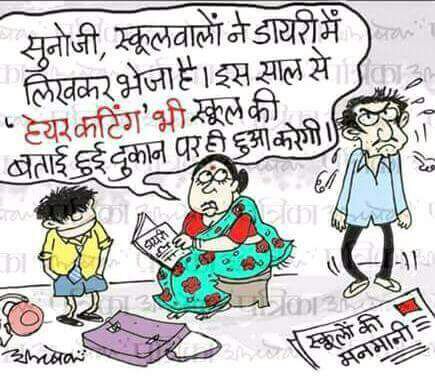 सुनोजी, स्कूलवालों ने डायरी में
लिखकर भेजा है। इस साल से
'हेयर कटिंग' भी स्कूल की
बताई हुई दुकान पर ही हुआ करेगी।
डायरी
स्कूलों की
मनमानी
पत्रिका